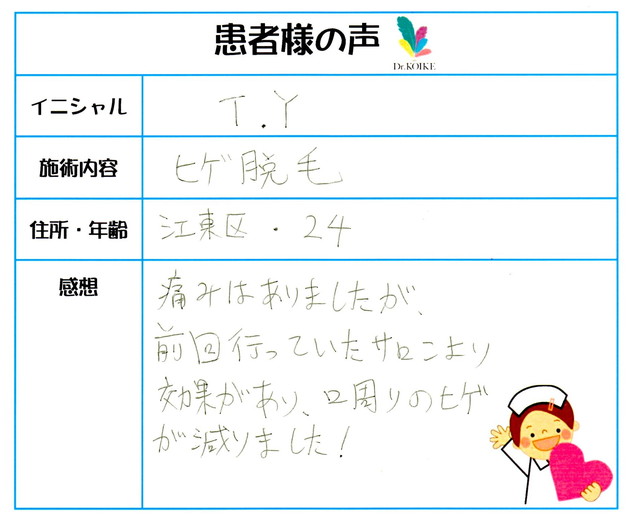 患者様の声
Dr.KOIKE
イニシャル
T.Y
施術内容
ヒゲ脱毛
住所・年齢
江東区・24
感想
痛みはありましたが、
前回行っていたサロンより
効果があり、口周りのヒゲ
が減りました!